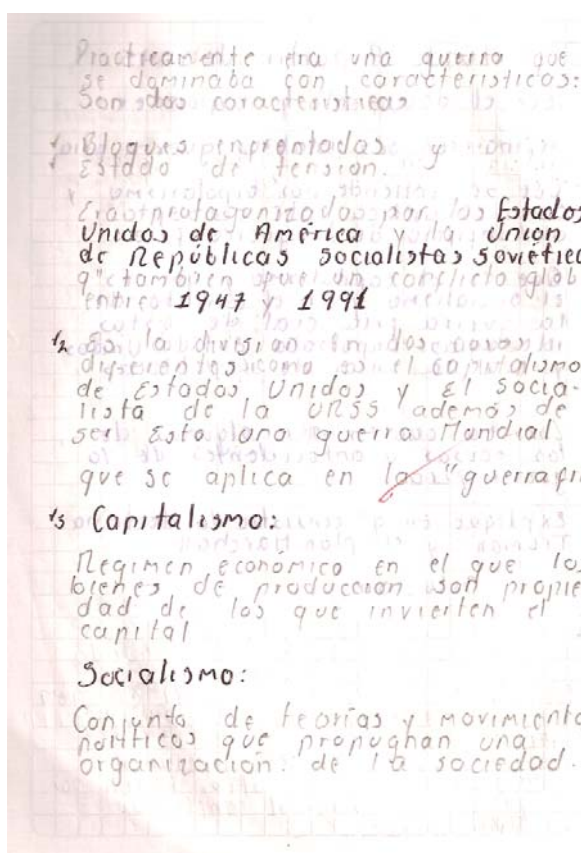 Practicamente era una guerra que
se dominaba con caracteristicas:
Son dos caracteristicas
1, Bloques enfrentados y
Estado de tension.
Era protagonizado por los Estados
Unidos de América y la Union
de Repúblicas Socialistas Sovietica
que tambien fue un conflicto glob
entre 1947 y 1991
1₂ Es la division en dos
diferentes como es el capitalismo
de Estados Unidos y El Socia-
lista de la URSS además de
ser Esta una guerra Mundial
que se aplica en la "guerra fri
1₃ Capitalismo:
Regimen economico en el que los
bienes de produccion son propie
dad de los que invierten el
capital
Socialismo:
Conjunto de teorías y movimiento
politicos que propugnan una
organizacion: de la sociedad.